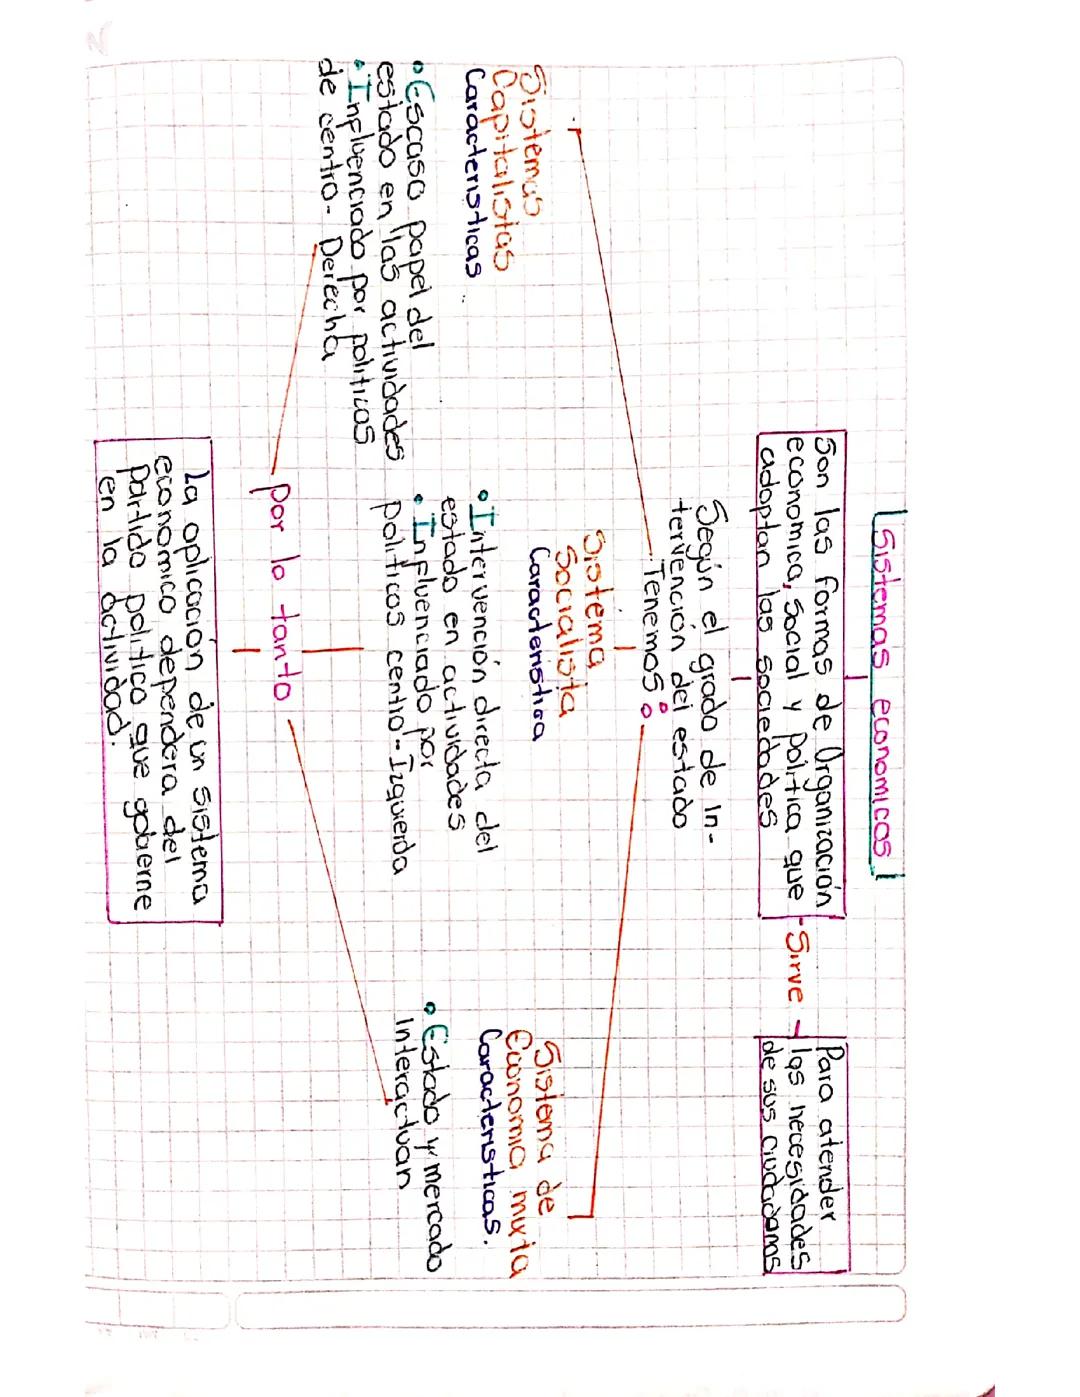 Sistemas economicos
Son las formas de Organización
economica, Social y politica que
adoptan las sociedades
Sirve
Para atender
las necesidades
de sus ciudadanos
Según el grado de in-
tervención del estado
Tenemos:
Sistemas
Capitalistas
Caracteristicas
• Escaso papel del
estado en las actividades
• Influenciado por politicas
de centro- Derecha
Sistema
Socialista
Caracteristica
• Intervención directa del
estado en actividades
• Influenciado por
politicas centro-Izquierda
Sistema de
Economia mixta
Caracteristicas.
• Estado y mercado
Interactuan
por lo tanto
La aplicación de un sistema
económico dependera del
partido politico que gobierne
en la actividad.